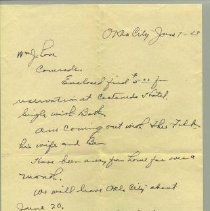 Okla City, June 7-28
Wm J. Love
Comrade.
Enclosed find $5.00 for
reservation at Hotel
Single with Bath
Am coming out with
his wife and
Have been away from home for over a
month.
We will leave Okla City about
June 20,